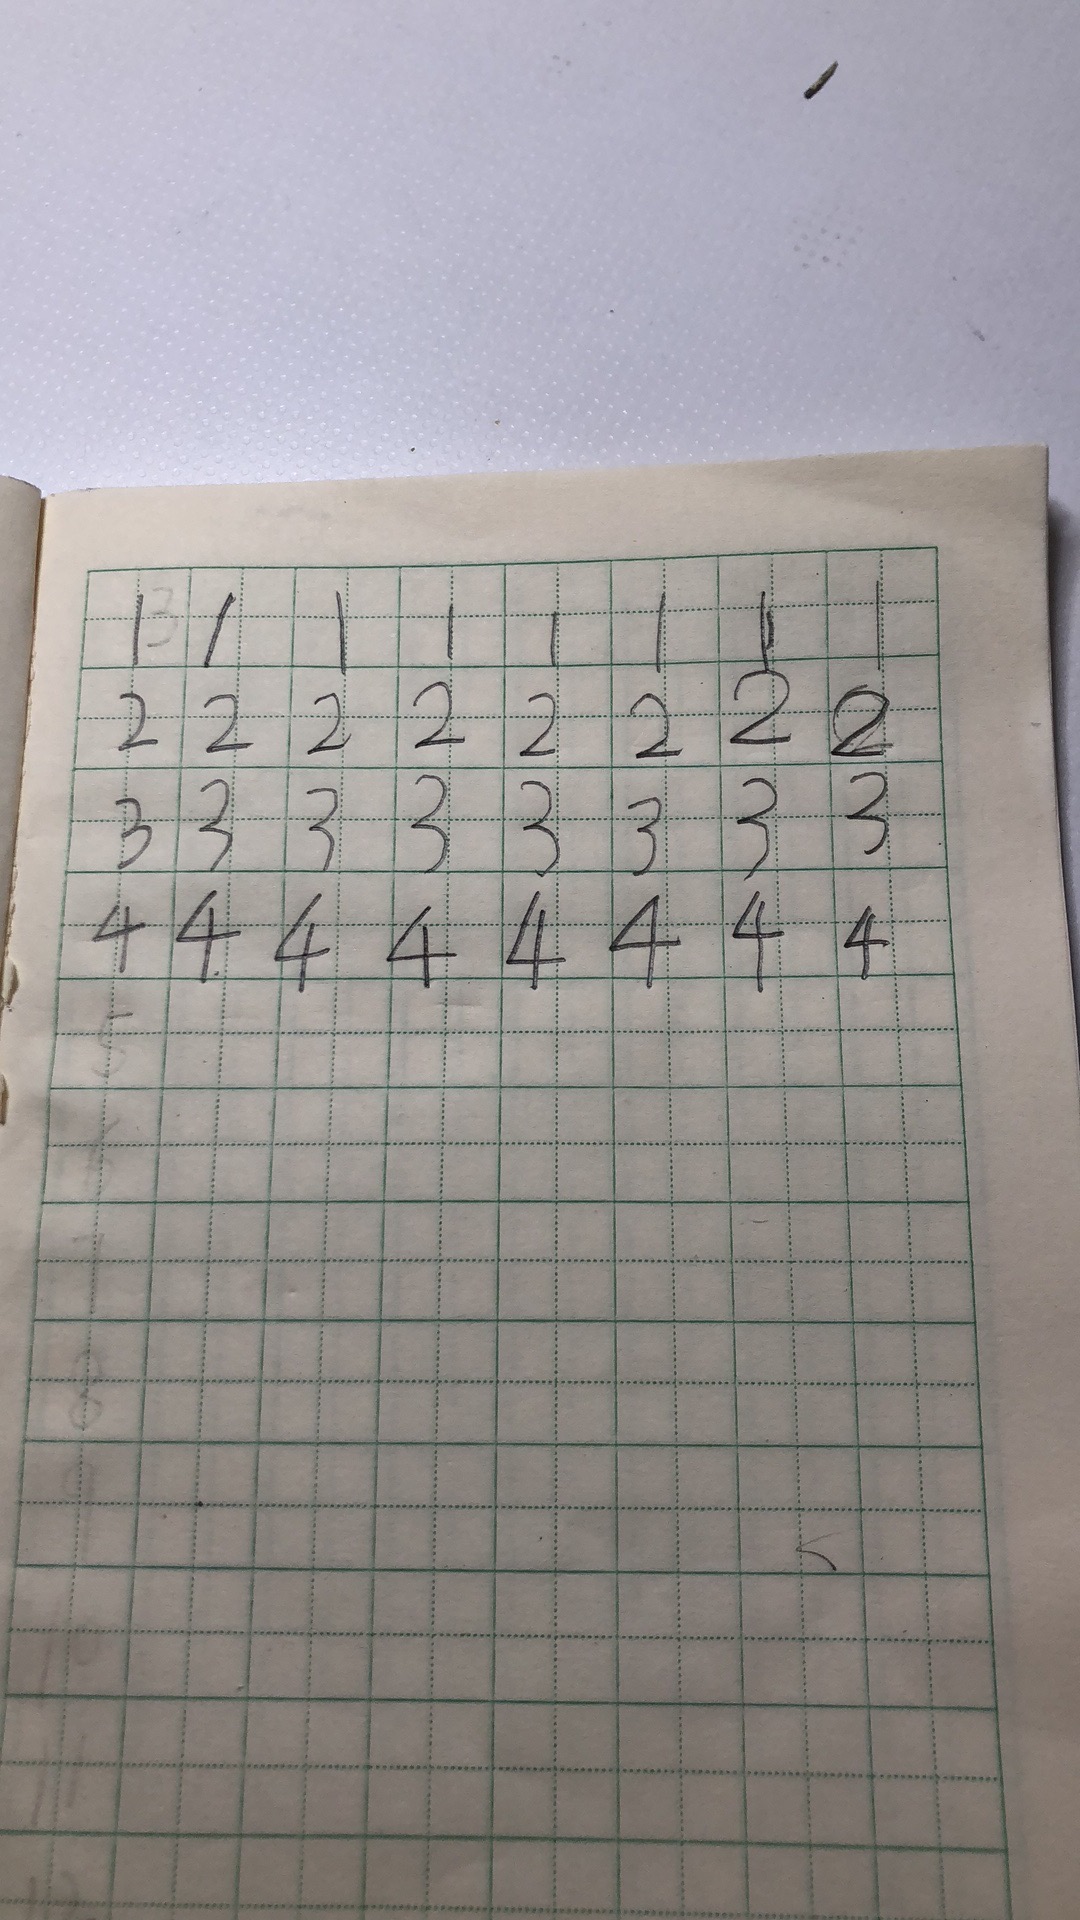 1 1 1 1 1 1 1 1
2 2 2 2 2 2 2 2
3 3 3 3 3 3 3 3
4 4 4 4 4 4 4 4